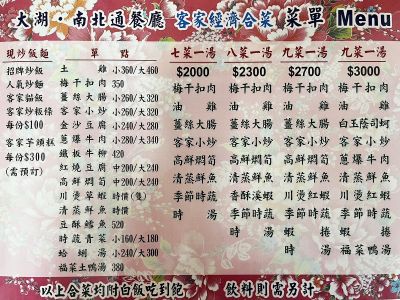 大湖·南北通餐廳 客家經濟合菜 菜單 Menu
現炒飯麵
招牌炒飯
人氣炒麵
客家貓飯
客家炒粄條
每份$100
客家芋頭糕
每份$300
(需預訂)
單 點
土 雞 小360/大460
梅干扣肉 350
薑絲大腸 小260/大320
客家小炒 小260/大320
金沙豆腐 小240/大320
蔥爆牛肉 小240/大340
鐵板牛柳 420
紅燒豆腐 中200/大240
高鮮燜筍 中200/大240
川燙草蝦 時價(隻)
清蒸鮮魚 時價
豆酥鱈魚 520
時蔬青菜 小160/大180
蛤蜊湯 小240/大300
福菜土鴨湯 380
七菜一湯
$2000
梅干扣肉
油 雞
薑絲大腸
客家小炒
高鮮燜筍
清蒸鮮魚
季節時蔬
時 湯
八菜一湯
$2300
梅干扣肉
油 雞
薑絲大腸
客家小炒
高鮮燜筍
清蒸鮮魚
香酥溪蝦
季節時蔬
時 湯
九菜一湯
$2700
梅干扣肉
油 雞
薑絲大腸
客家小炒
高鮮燜筍
清蒸鮮魚
川燙紅蝦
季節時蔬
蝦 捲
時 湯
九菜一湯
$3000
梅干扣肉
油 雞
白玉蔭司蚵
客家小炒
蔥爆牛肉
清蒸鮮魚
川燙紅蝦
季節時蔬
蝦 捲
福菜鴨湯
以上合菜均附白飯吃到飽 飲料則需另計